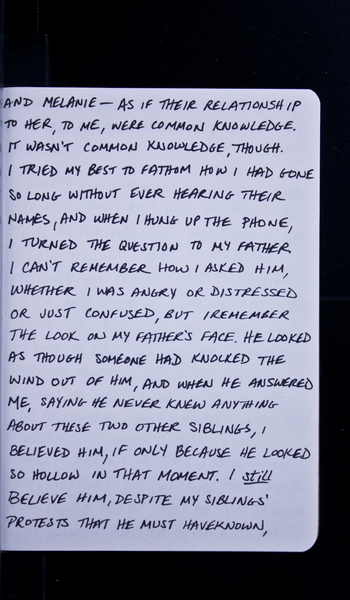 AND MELANIE — AS IF THEIR RELATIONSHIP
TO HER, TO ME, WERE COMMON KNOWLEDGE.
IT WASN'T COMMON KNOWLEDGE, THOUGH.
I TRIED MY BEST TO FATHOM HOW I HAD GONE
SO LONG WITHOUT EVER HEARING THEIR
NAMES, AND WHEN I HUNG UP THE PHONE,
I TURNED THE QUESTION TO MY FATHER
I CAN'T REMEMBER HOW I ASKED HIM,
WHETHER I WAS ANGRY OR DISTRESSED
OR JUST CONFUSED, BUT I REMEMBER
THE LOOK ON MY FATHER'S FACE. HE LOOKED
AS THOUGH SOMEONE HAD KNOCKED THE
WIND OUT OF HIM, AND WHEN HE ANSWERED
ME, SAYING HE NEVER KNEW ANYTHING
ABOUT THESE TWO OTHER SIBLINGS, I
BELIEVED HIM, IF ONLY BECAUSE HE LOOKED
SO HOLLOW IN THAT MOMENT. I still
BELIEVE HIM, DESPITE MY SIBLINGS'
PROTESTS THAT HE MUST HAVE KNOWN,